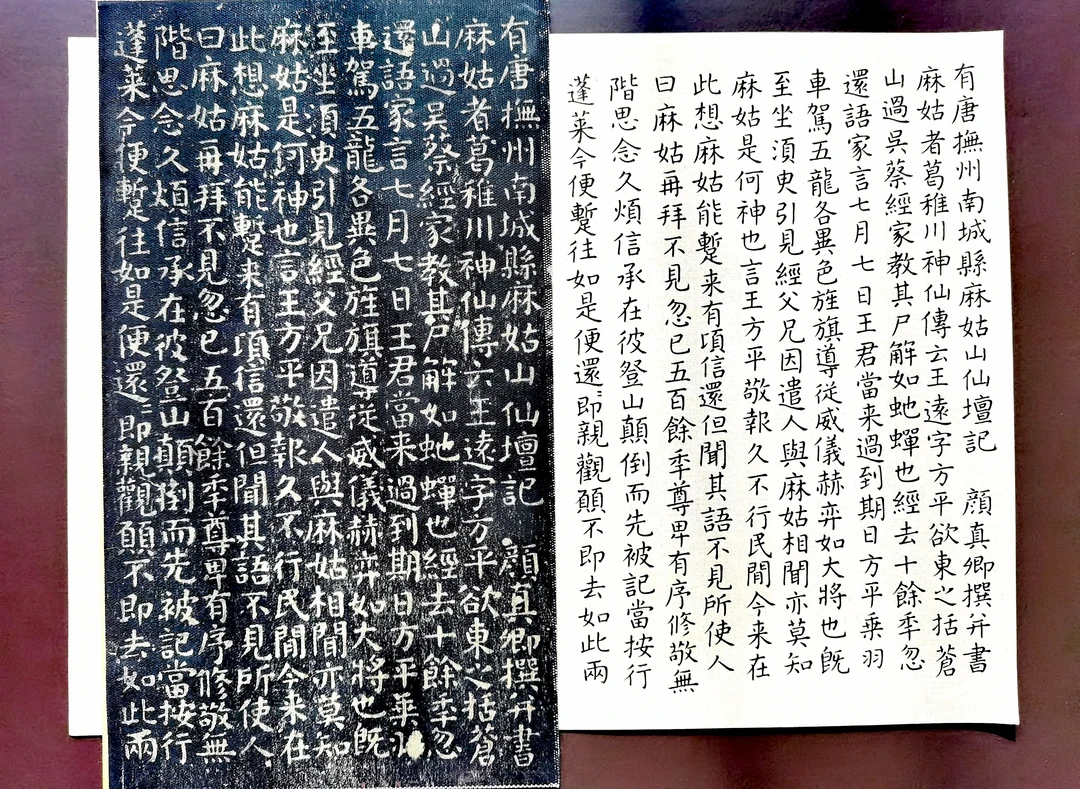 有唐撫州南城縣麻姑山仙壇記 顏真卿撰并書
麻姑者葛稚川神仙傳云王遠字方平欲東之括蒼
山過吳蔡經家教其尸解如虵蟬也經去十餘秊忽
還語家言七月七日王君當来過到期日方平乗羽
車駕五龍各異色旌旗導從威儀赫弈如大將也旣
至坐湏臾引見經父兄因遣人與麻姑相聞亦莫知
麻姑是何神也言王方平敬報久不行民間今来在
此想麻姑能蹔来有頃信還但聞其語不見所使人
曰麻姑再拜不見忽已五百餘秊尊卑有序修敬無
階思念久煩信承在彼登山顛倒而先被記當按行
蓬莱今便蹔往如是便還〻即親觀願不即去如此兩
有唐撫州南城縣麻姑山仙壇記 顏真卿撰并書
麻姑者葛稚川神仙傳云王遠字方平欲東之括蒼
山過吳蔡經家教其尸解如虵蟬也經去十餘秊忽
還語家言七月七日王君當来過到期日方平乗羽
車駕五龍各異色旌旗導從威儀赫弈如大將也旣
至坐湏臾引見經父兄因遣人與麻姑相聞亦莫知
麻姑是何神也言王方平敬報久不行民間今来在
此想麻姑能蹔来有頃信還但聞其語不見所使人
曰麻姑再拜不見忽已五百餘秊尊卑有序修敬無
階思念久煩信承在彼登山顛倒而先被記當按行
蓬莱今便蹔往如是便還〻即親觀願不即去如此兩